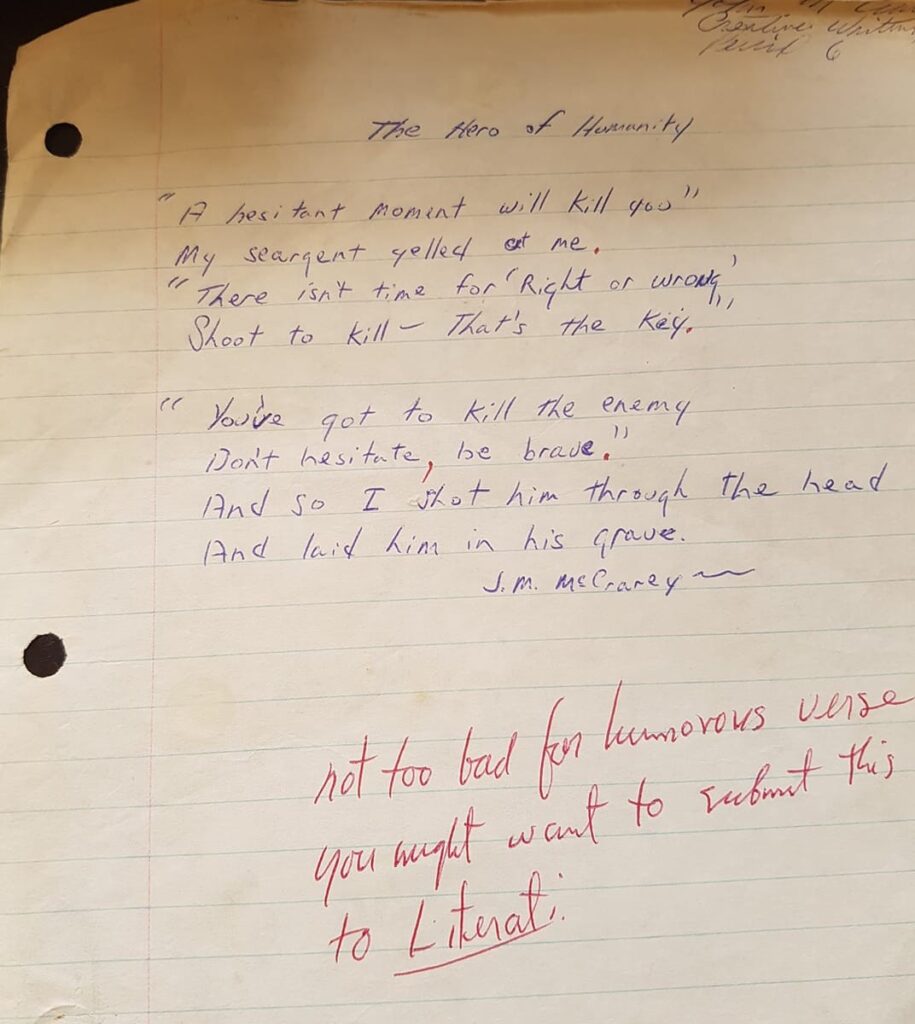 Creative Writing
Period 6
The Hero of Humanity
"A hesitant moment will kill you"
My seargent yelled at me.
"There isn't time for 'Right or wrong'
Shoot to kill – That's the key."
"You've got to kill the enemy
Don't hesitate, be brave."
And so I shot him through the head
And laid him in his grave.
J.M. McCraney
not too bad for humorous verse
you might want to submit this
to Literati.